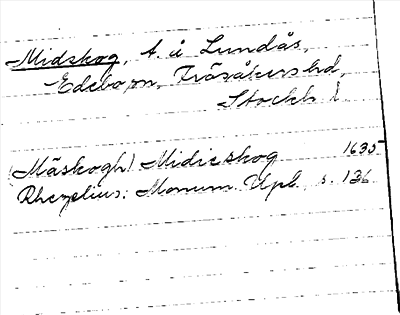 Midskog, t. u. Lundås,
Edebo sn, Frösåkers hd,
Stockh. l.
(Mäskogh) Midieskog 1635
Rhezelius: Monum. Upl. s. 136